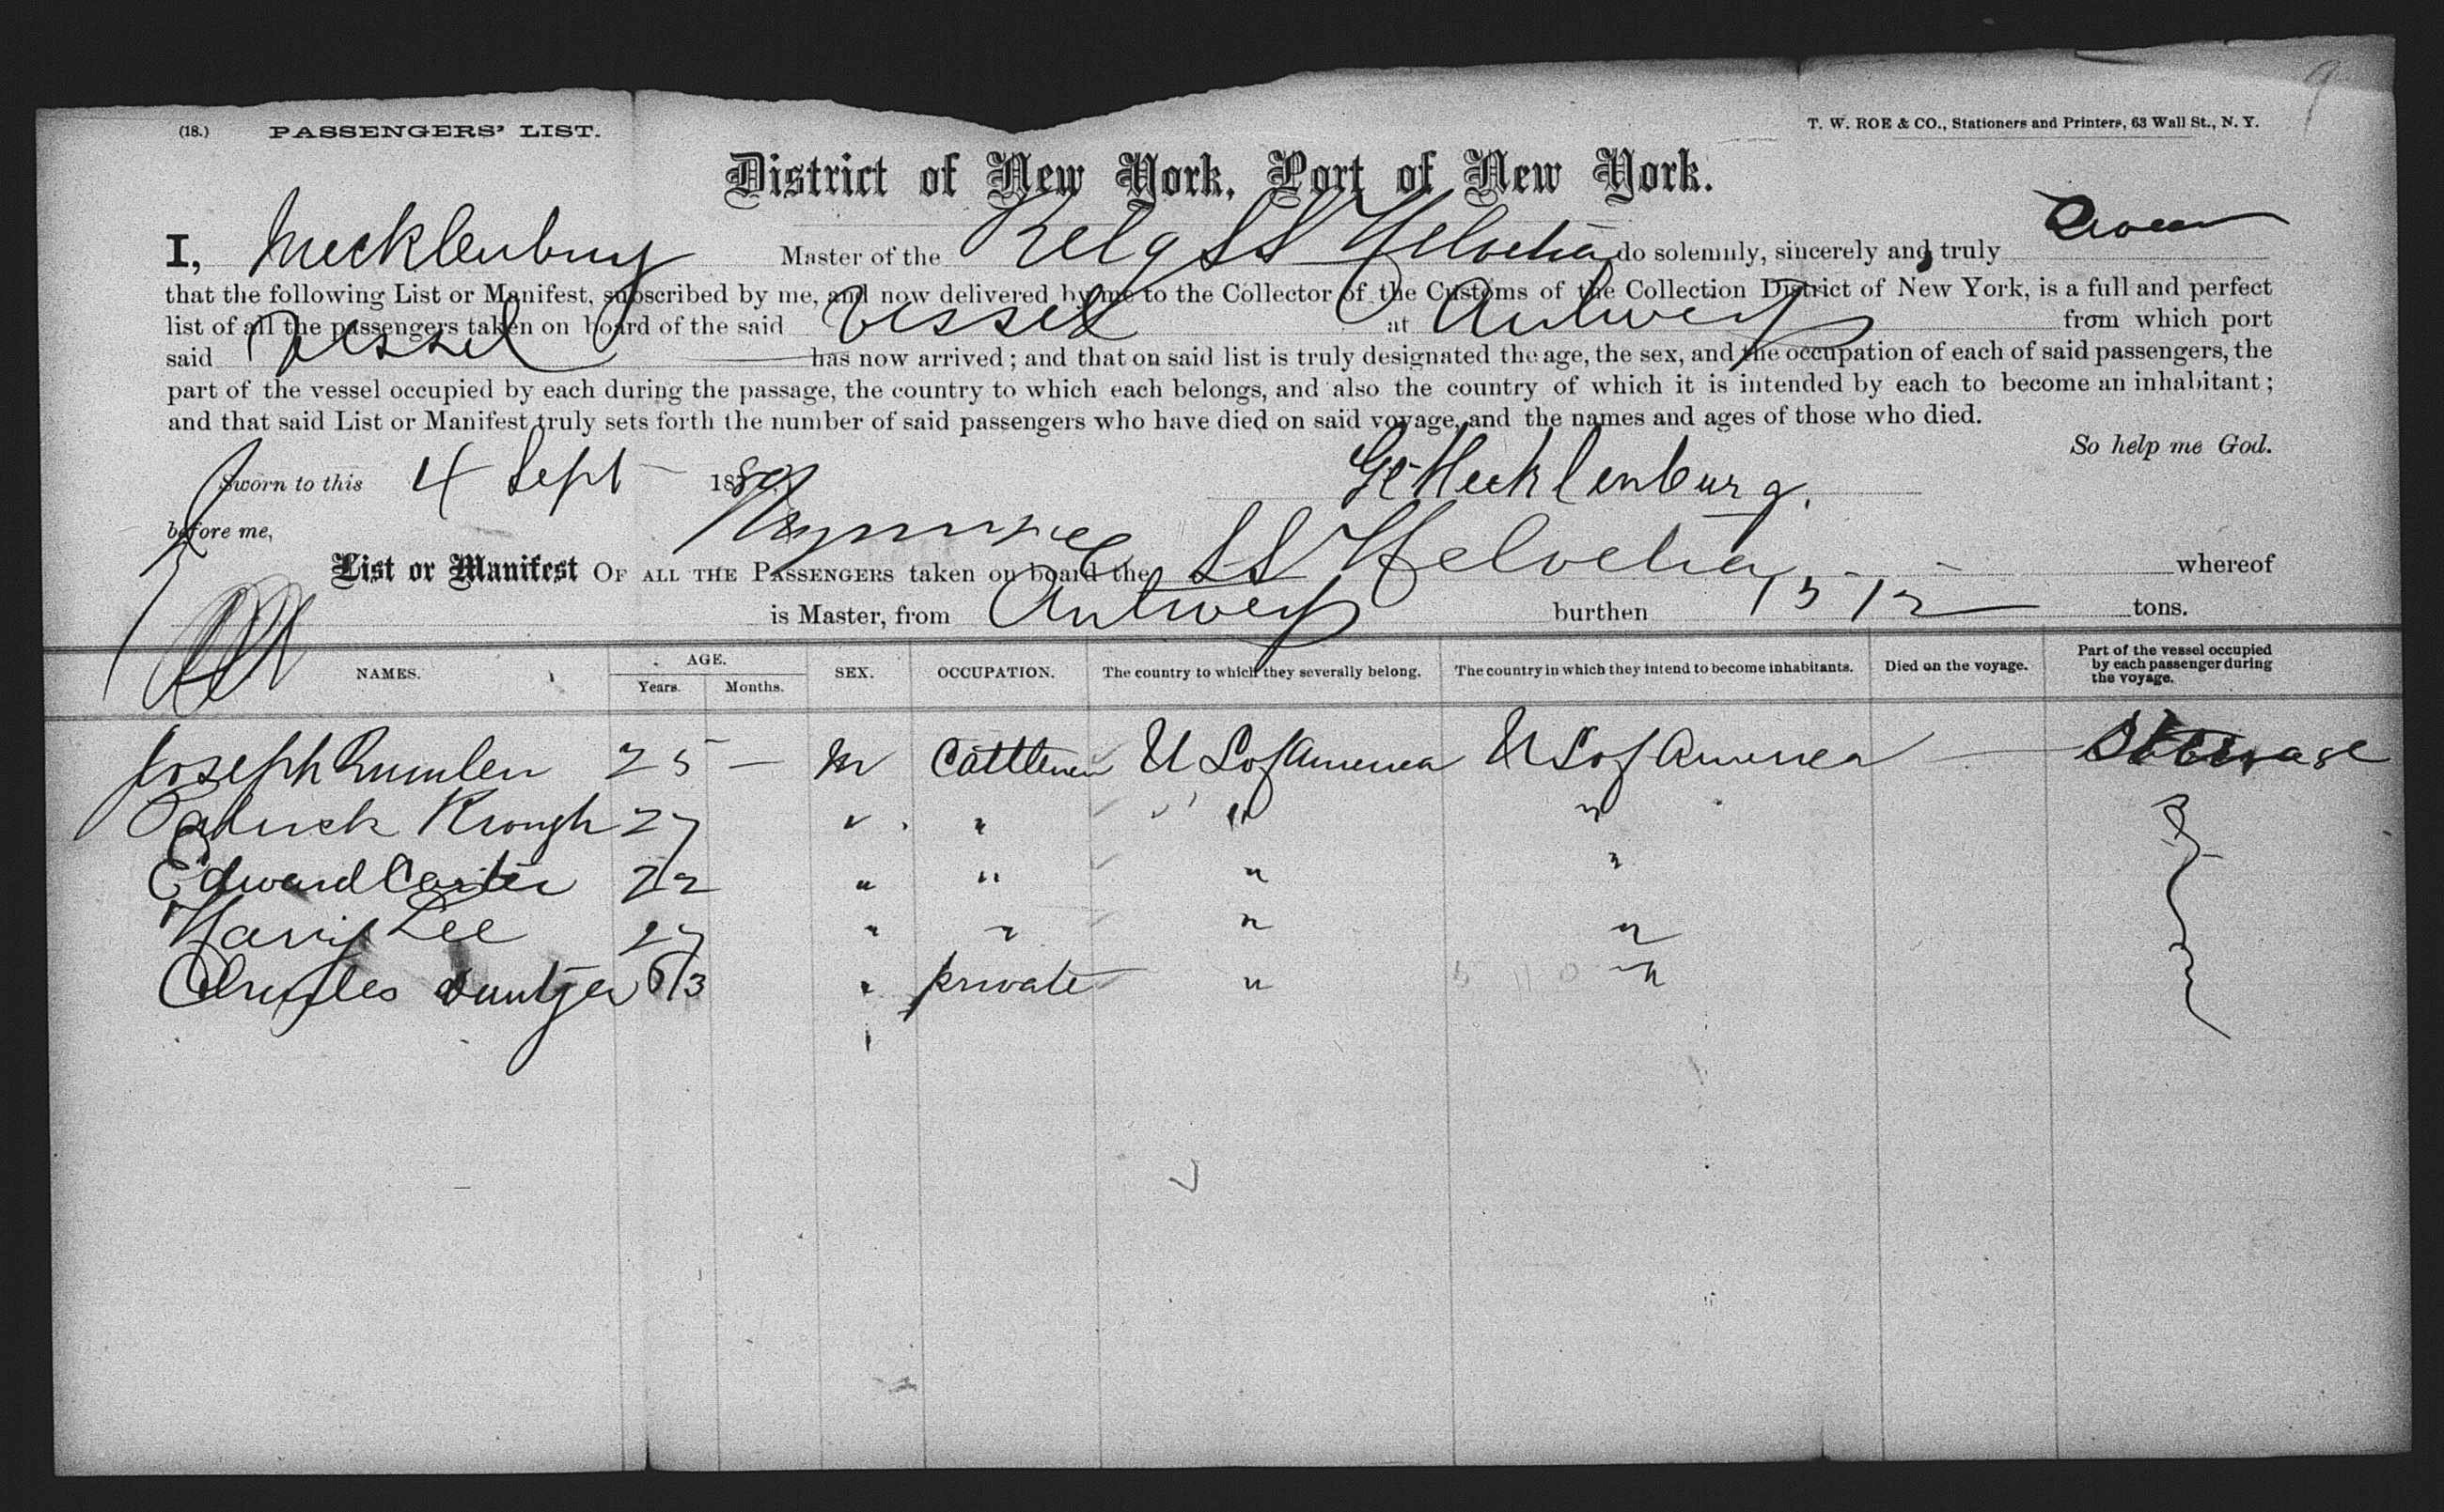 (18.) PASSENGERS' LIST. T. W. ROE & CO., Stationers and Printers, 63 Wall St., N. Y. 9
District of New York, Port of New York.
I, Mecklenburg Master of the Belg SS Helvetia do solemnly, sincerely and truly swear
that the following List or Manifest, subscribed by me, and now delivered by me to the Collector of the Customs of the Collection District of New York, is a full and perfect
list of all the passengers taken on board of the said Vessel at Antwerp from which port
said Vessel has now arrived; and that on said list is truly designated the age, the sex, and the occupation of each of said passengers, the
part of the vessel occupied by each during the passage, the country to which each belongs, and also the country of which it is intended by each to become an inhabitant;
and that said List or Manifest truly sets forth the number of said passengers who have died on said voyage, and the names and ages of those who died.
So help me God.
Sworn to this 4 Sept 18 Mecklenburg.
before me,
List or Manifest OF ALL THE PASSENGERS taken on board the SS Helvetia whereof
is Master, from Antwerp burthen tons.
NAMES. AGE. Years. Months. SEX. OCCUPATION. The country to which they severally belong. The country in which they intend to become inhabitants. Died on the voyage. Part of the vessel occupied by each passenger during the voyage.
Joseph 25 — M Cattlemen U S of America U S of America — Steerage
Patrick Keough 27 " " " "
Edward Carter 22 " " " "
Harry Lee 27 " " " "
Charles " private " "